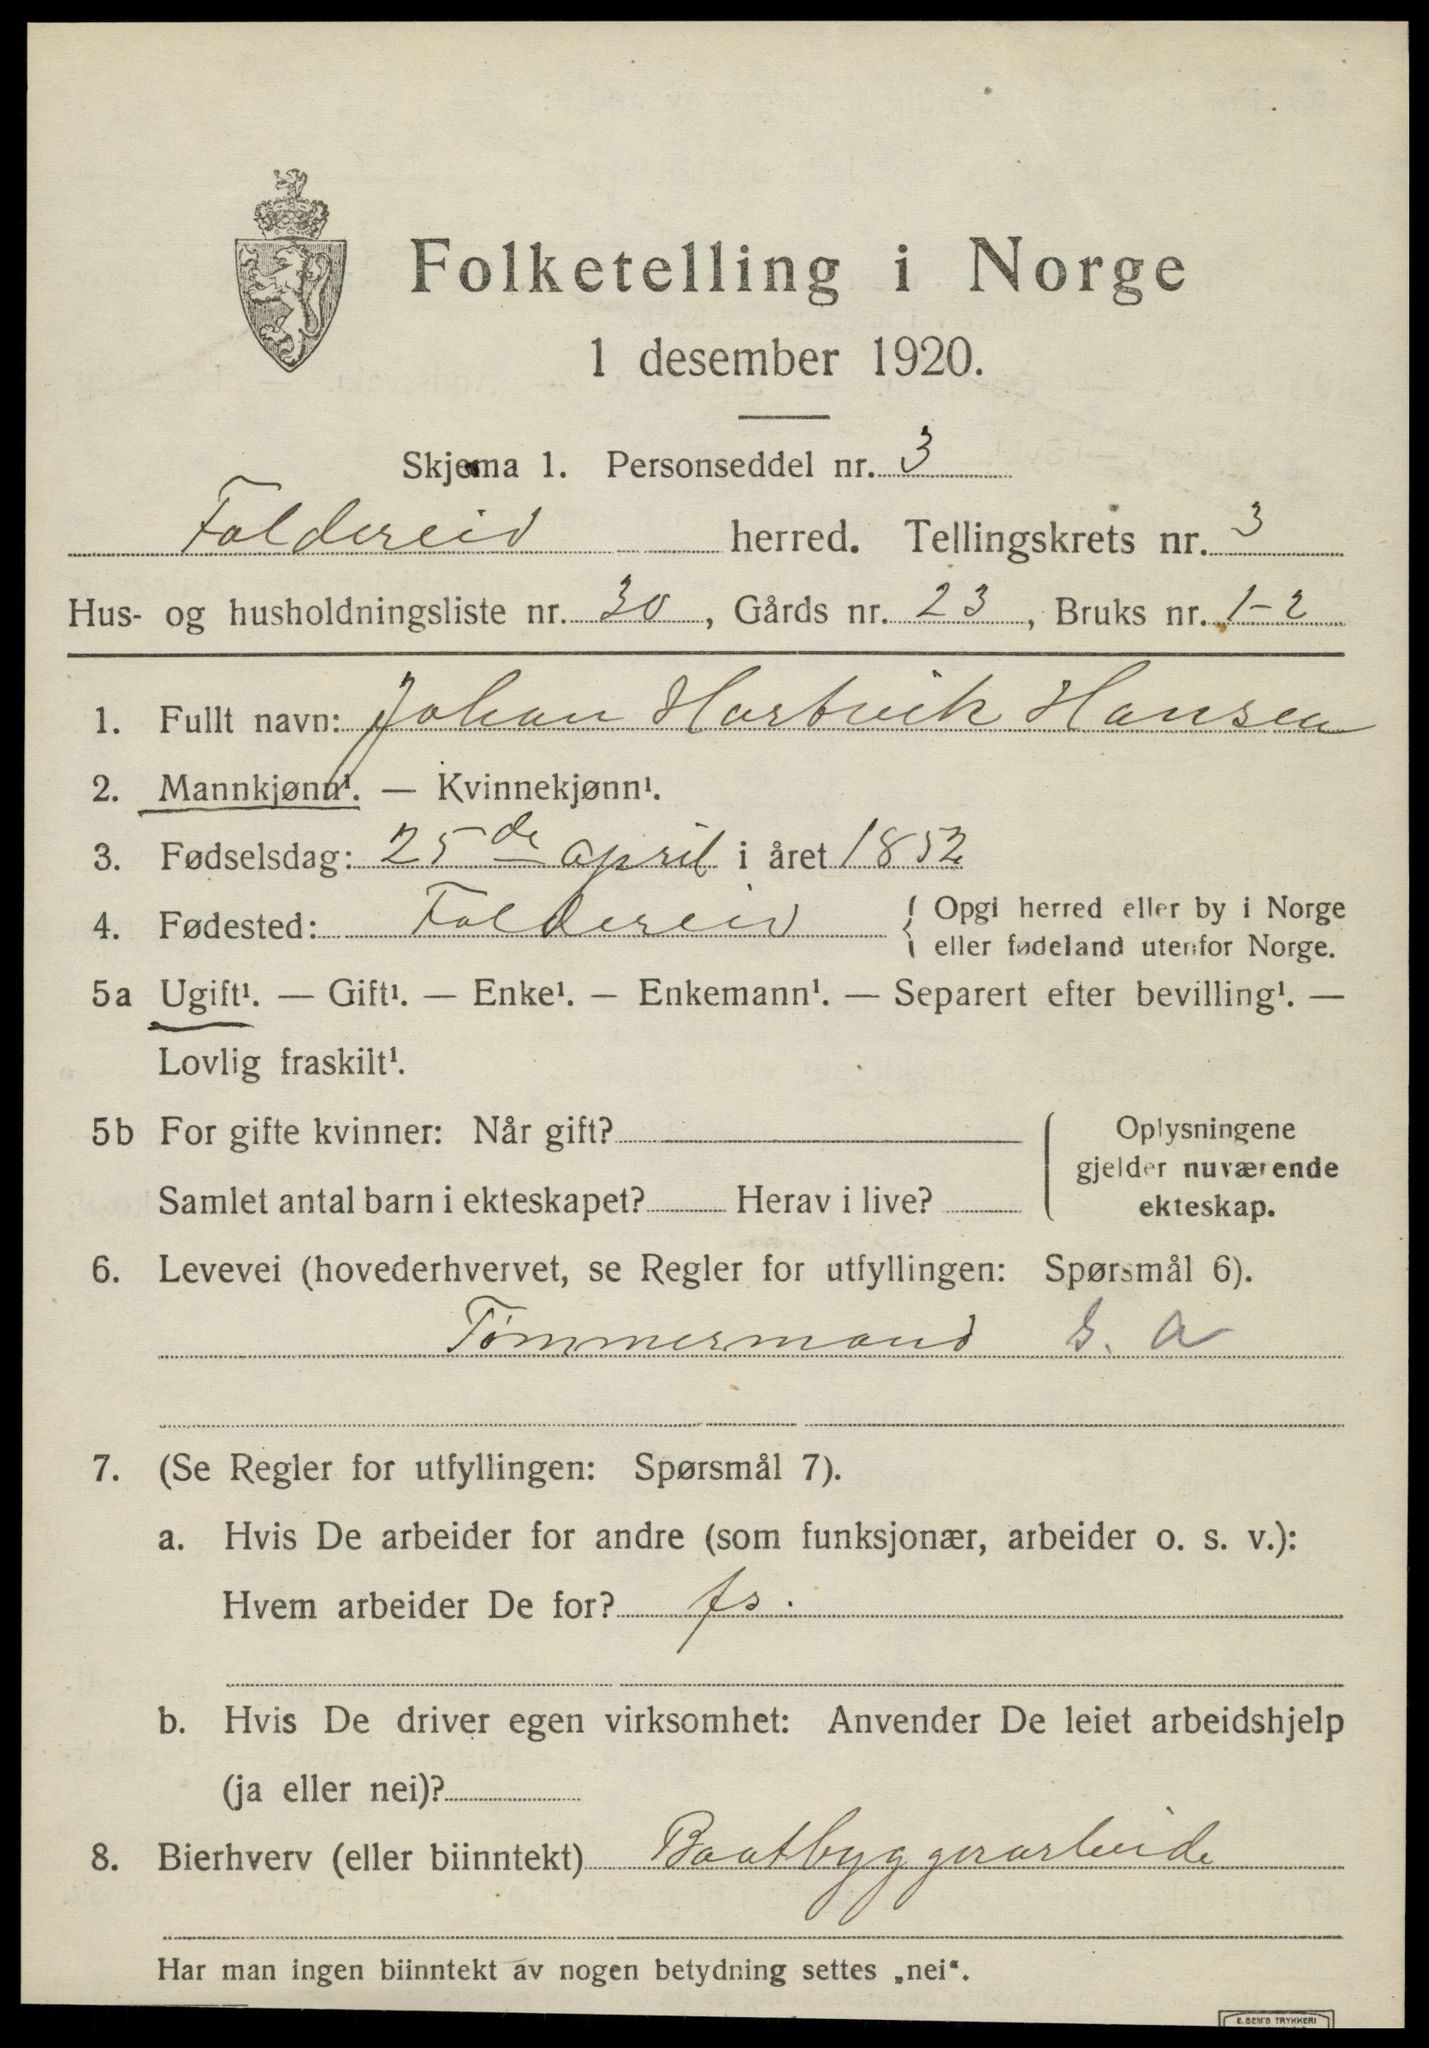 Folketelling i Norge
1 desember 1920.
Skjema 1. Personseddel nr. 3
Foldereid herred. Tellingskrets nr. 3
Hus- og husholdningsliste nr. 30, Gårds nr. 23, Bruks nr. 1-2
1. Fullt navn: Johan Hartvik Hansen
2. Mannkjønn¹. — Kvinnekjønn¹.
3. Fødselsdag: 25de april i året 1852
4. Fødested: Foldereid { Opgi herred eller by i Norge
eller fødeland utenfor Norge.
5a Ugift¹. — Gift¹. — Enke¹. — Enkemann¹. — Separert efter bevilling¹. —
Lovlig fraskilt¹.
5b For gifte kvinner: Når gift?
Samlet antal barn i ekteskapet? Herav i live?
Oplysningene
gjelder nuværende
ekteskap.
6. Levevei (hovederhvervet, se Regler for utfyllingen: Spørsmål 6).
Tømmermand a
7. (Se Regler for utfyllingen: Spørsmål 7).
a. Hvis De arbeider for andre (som funksjonær, arbeider o. s. v.):
Hvem arbeider De for? fs.
b. Hvis De driver egen virksomhet: Anvender De leiet arbeidshjelp
(ja eller nei)?
8. Bierhverv (eller biinntekt) Baatbyggerarbeide
Har man ingen biinntekt av nogen betydning settes „nei“.
E. SEM'S TRYKKERI